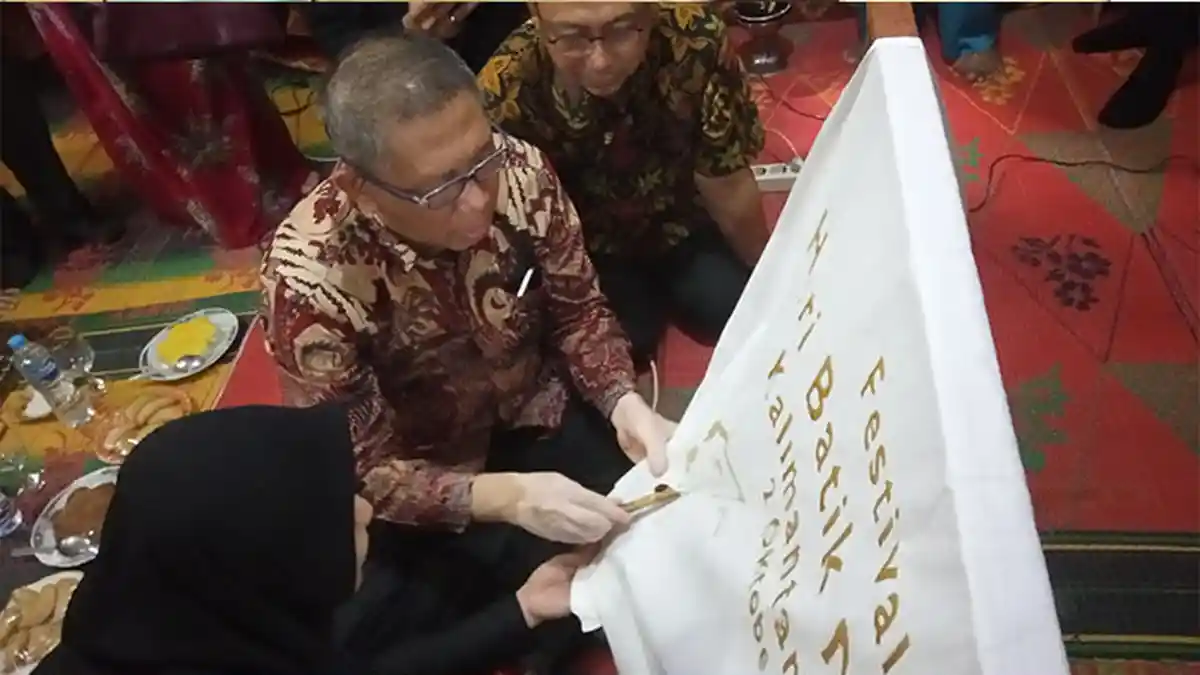 Festival
Hari Batik
Kalimantan
2 Oktobe